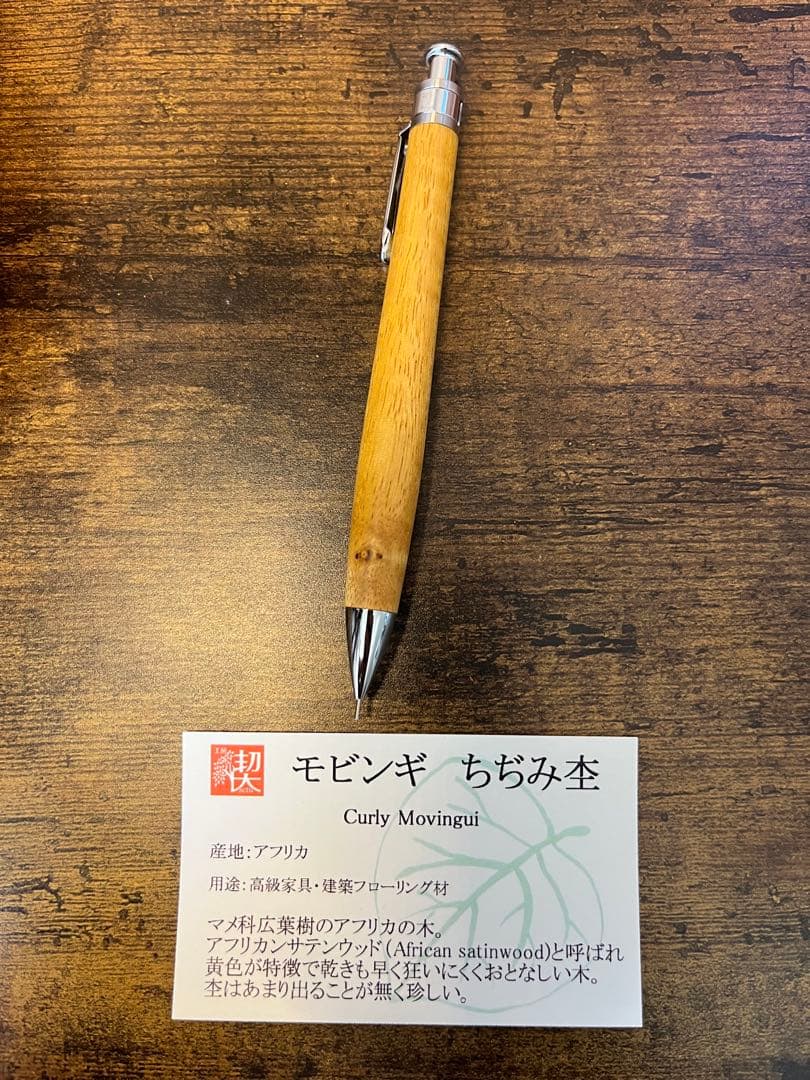 契
モビンギ ちぢみ杢
Curly Movingui
産地:アフリカ
用途:高級家具・建築フローリング材
マメ科広葉樹のアフリカの木。
アフリカンサテンウッド(African satinwood)と呼ばれ
黄色が特徴で乾きも早く狂いにくくおとなしい木。
杢はあまり出ることが無く珍しい。